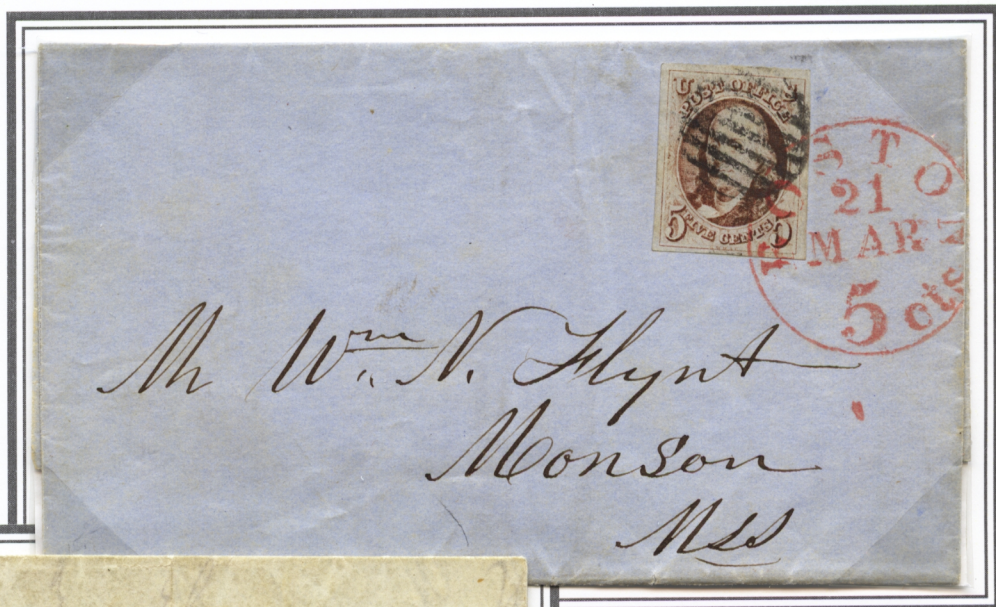 U S
POST OFFICE
5 FIVE CENTS 5
BOSTON
21
MAR
5 cts
Mr Wm. N. Flynt
Monson
Mss